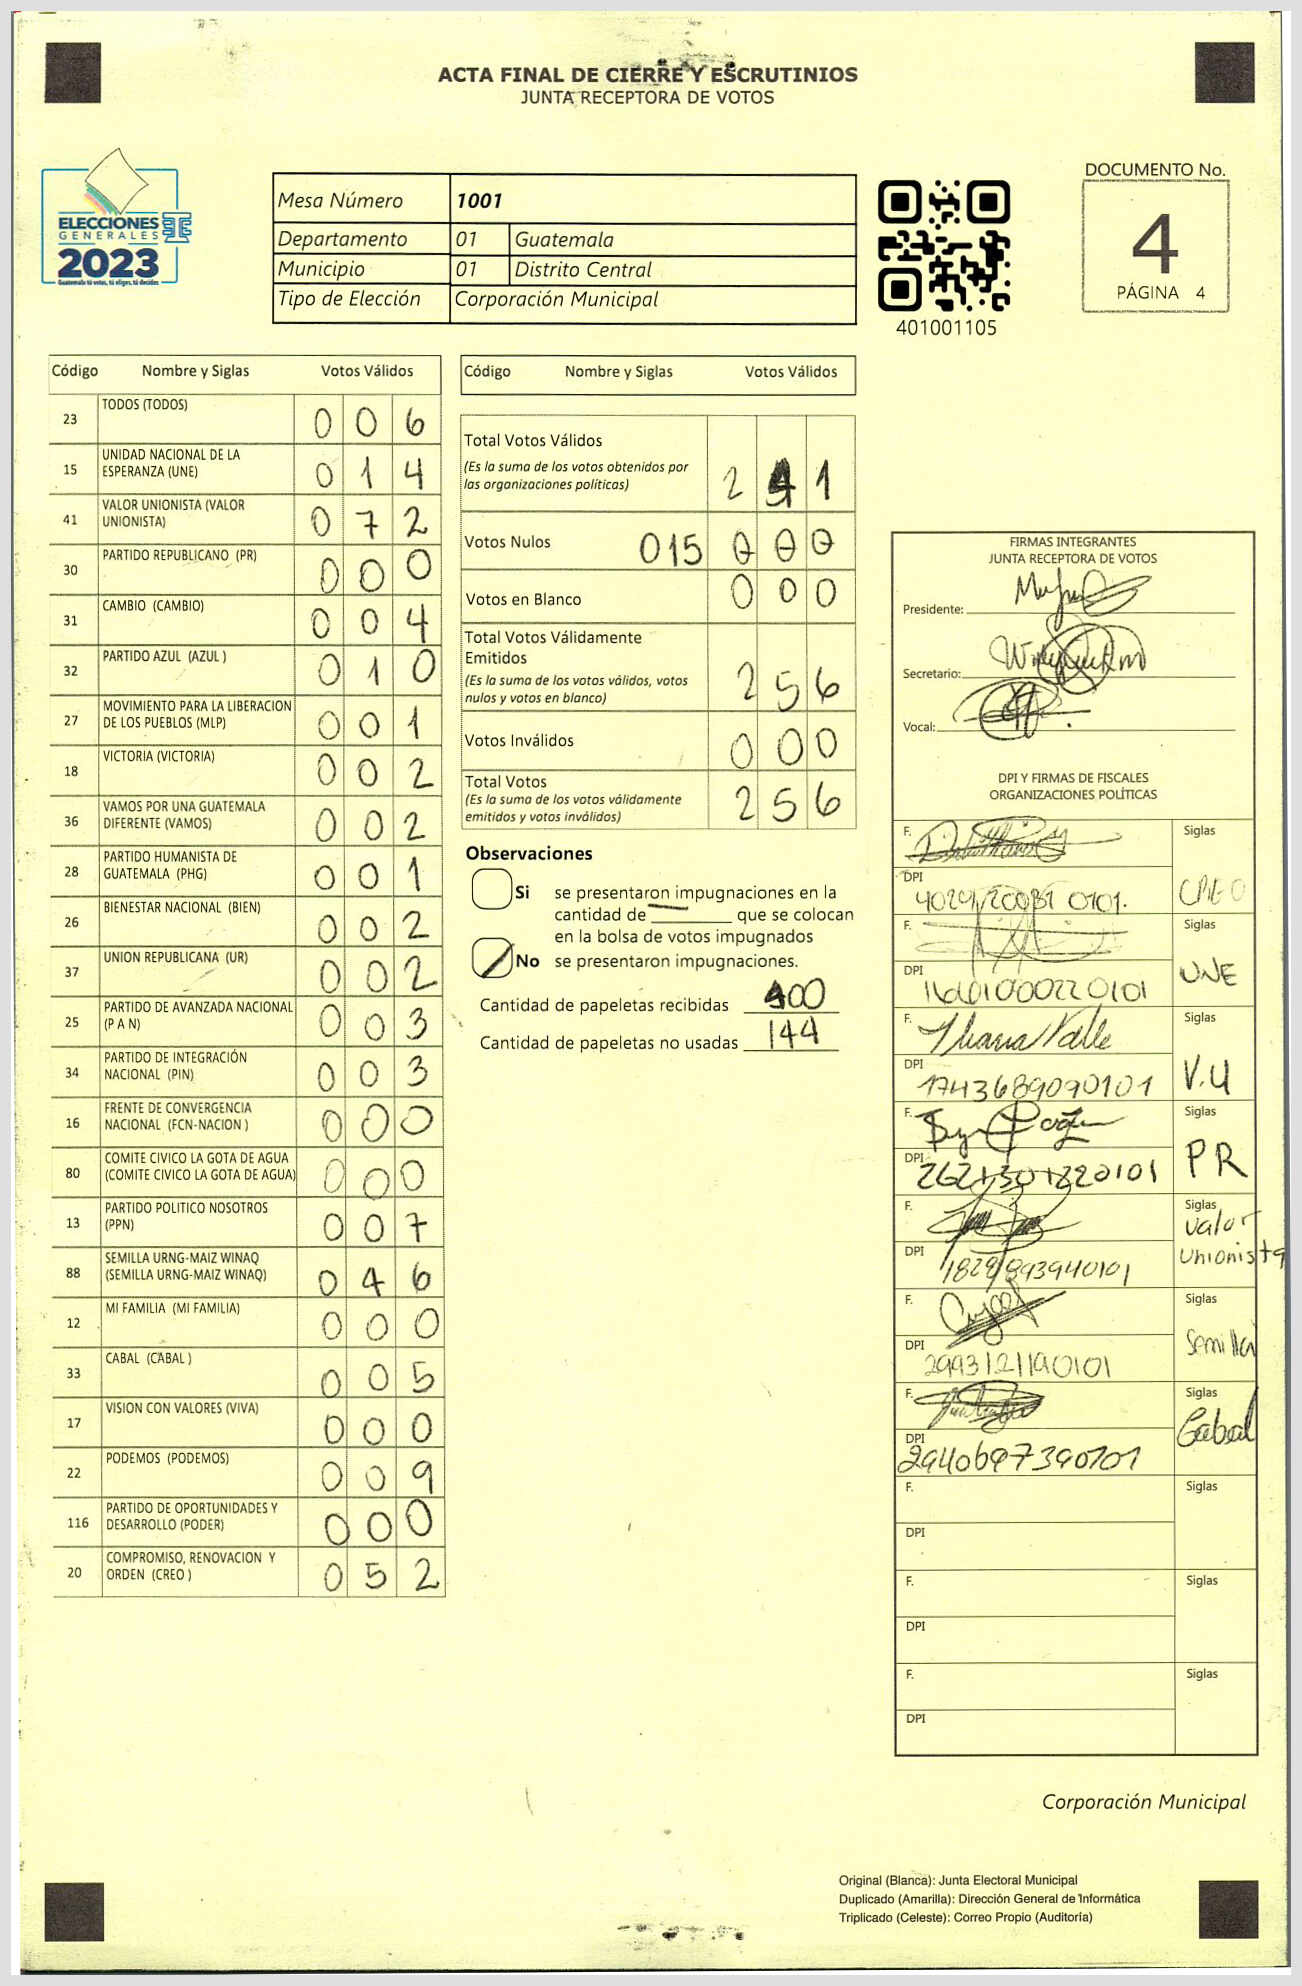 ACTA FINAL DE CIERRE Y ESCRUTINIOS
JUNTA RECEPTORA DE VOTOS
ELECCIONES
GENERALES
2023
Guatemala tú votas, tú eliges, tú decides
Mesa Número 1001
Departamento 01 Guatemala
Municipio 01 Distrito Central
Tipo de Elección Corporación Municipal
401001105
DOCUMENTO No.
4
PÁGINA 4
Código Nombre y Siglas Votos Válidos
23 TODOS (TODOS) 0 0 6
15 UNIDAD NACIONAL DE LA
ESPERANZA (UNE) 0 1 4
41 VALOR UNIONISTA (VALOR
UNIONISTA) 0 7 2
30 PARTIDO REPUBLICANO (PR) 0 0 0
31 CAMBIO (CAMBIO) 0 0 4
32 PARTIDO AZUL (AZUL ) 0 1 0
27 MOVIMIENTO PARA LA LIBERACION
DE LOS PUEBLOS (MLP) 0 0 1
18 VICTORIA (VICTORIA) 0 0 2
36 VAMOS POR UNA GUATEMALA
DIFERENTE (VAMOS) 0 0 2
28 PARTIDO HUMANISTA DE
GUATEMALA (PHG) 0 0 1
26 BIENESTAR NACIONAL (BIEN) 0 0 2
37 UNION REPUBLICANA (UR) 0 0 2
25 PARTIDO DE AVANZADA NACIONAL
(P A N) 0 0 3
34 PARTIDO DE INTEGRACIÓN
NACIONAL (PIN) 0 0 3
16 FRENTE DE CONVERGENCIA
NACIONAL (FCN-NACION ) 0 0 0
80 COMITE CIVICO LA GOTA DE AGUA
(COMITE CIVICO LA GOTA DE AGUA) 0 0 0
13 PARTIDO POLITICO NOSOTROS
(PPN) 0 0 7
88 SEMILLA URNG-MAIZ WINAQ
(SEMILLA URNG-MAIZ WINAQ) 0 4 6
12 MI FAMILIA (MI FAMILIA) 0 0 0
33 CABAL (CABAL ) 0 0 5
17 VISION CON VALORES (VIVA) 0 0 0
22 PODEMOS (PODEMOS) 0 0 9
116 PARTIDO DE OPORTUNIDADES Y
DESARROLLO (PODER) 0 0 0
20 COMPROMISO, RENOVACION Y
ORDEN (CREO ) 0 5 2
Código Nombre y Siglas Votos Válidos
Total Votos Válidos
(Es la suma de los votos obtenidos por
las organizaciones políticas) 2 4 1
Votos Nulos 015 0 0 0
Votos en Blanco 0 0 0
Total Votos Válidamente
Emitidos
(Es la suma de los votos válidos, votos
nulos y votos en blanco) 2 5 6
Votos Inválidos 0 0 0
Total Votos
(Es la suma de los votos válidamente
emitidos y votos inválidos) 2 5 6
Observaciones
Si se presentaron impugnaciones en la
cantidad de ________ que se colocan
en la bolsa de votos impugnados
No se presentaron impugnaciones.
Cantidad de papeletas recibidas 400
Cantidad de papeletas no usadas 144
FIRMAS INTEGRANTES
JUNTA RECEPTORA DE VOTOS
Presidente:
Secretario:
Vocal:
DPI Y FIRMAS DE FISCALES
ORGANIZACIONES POLÍTICAS
F. Siglas
DPI CREO
F. Siglas
DPI UNE
F. Siglas
DPI 1743689090101 V.U
F. Siglas
DPI PR
F. Siglas
DPI Valor
Unionista
F. Siglas
DPI 2993121190101 Semilla
F. Siglas
DPI 2940697390101 Cabal
F. Siglas
DPI
F. Siglas
DPI
F. Siglas
DPI
Corporación Municipal
Original (Blanca): Junta Electoral Municipal
Duplicado (Amarilla): Dirección General de Informática
Triplicado (Celeste): Correo Propio (Auditoría)